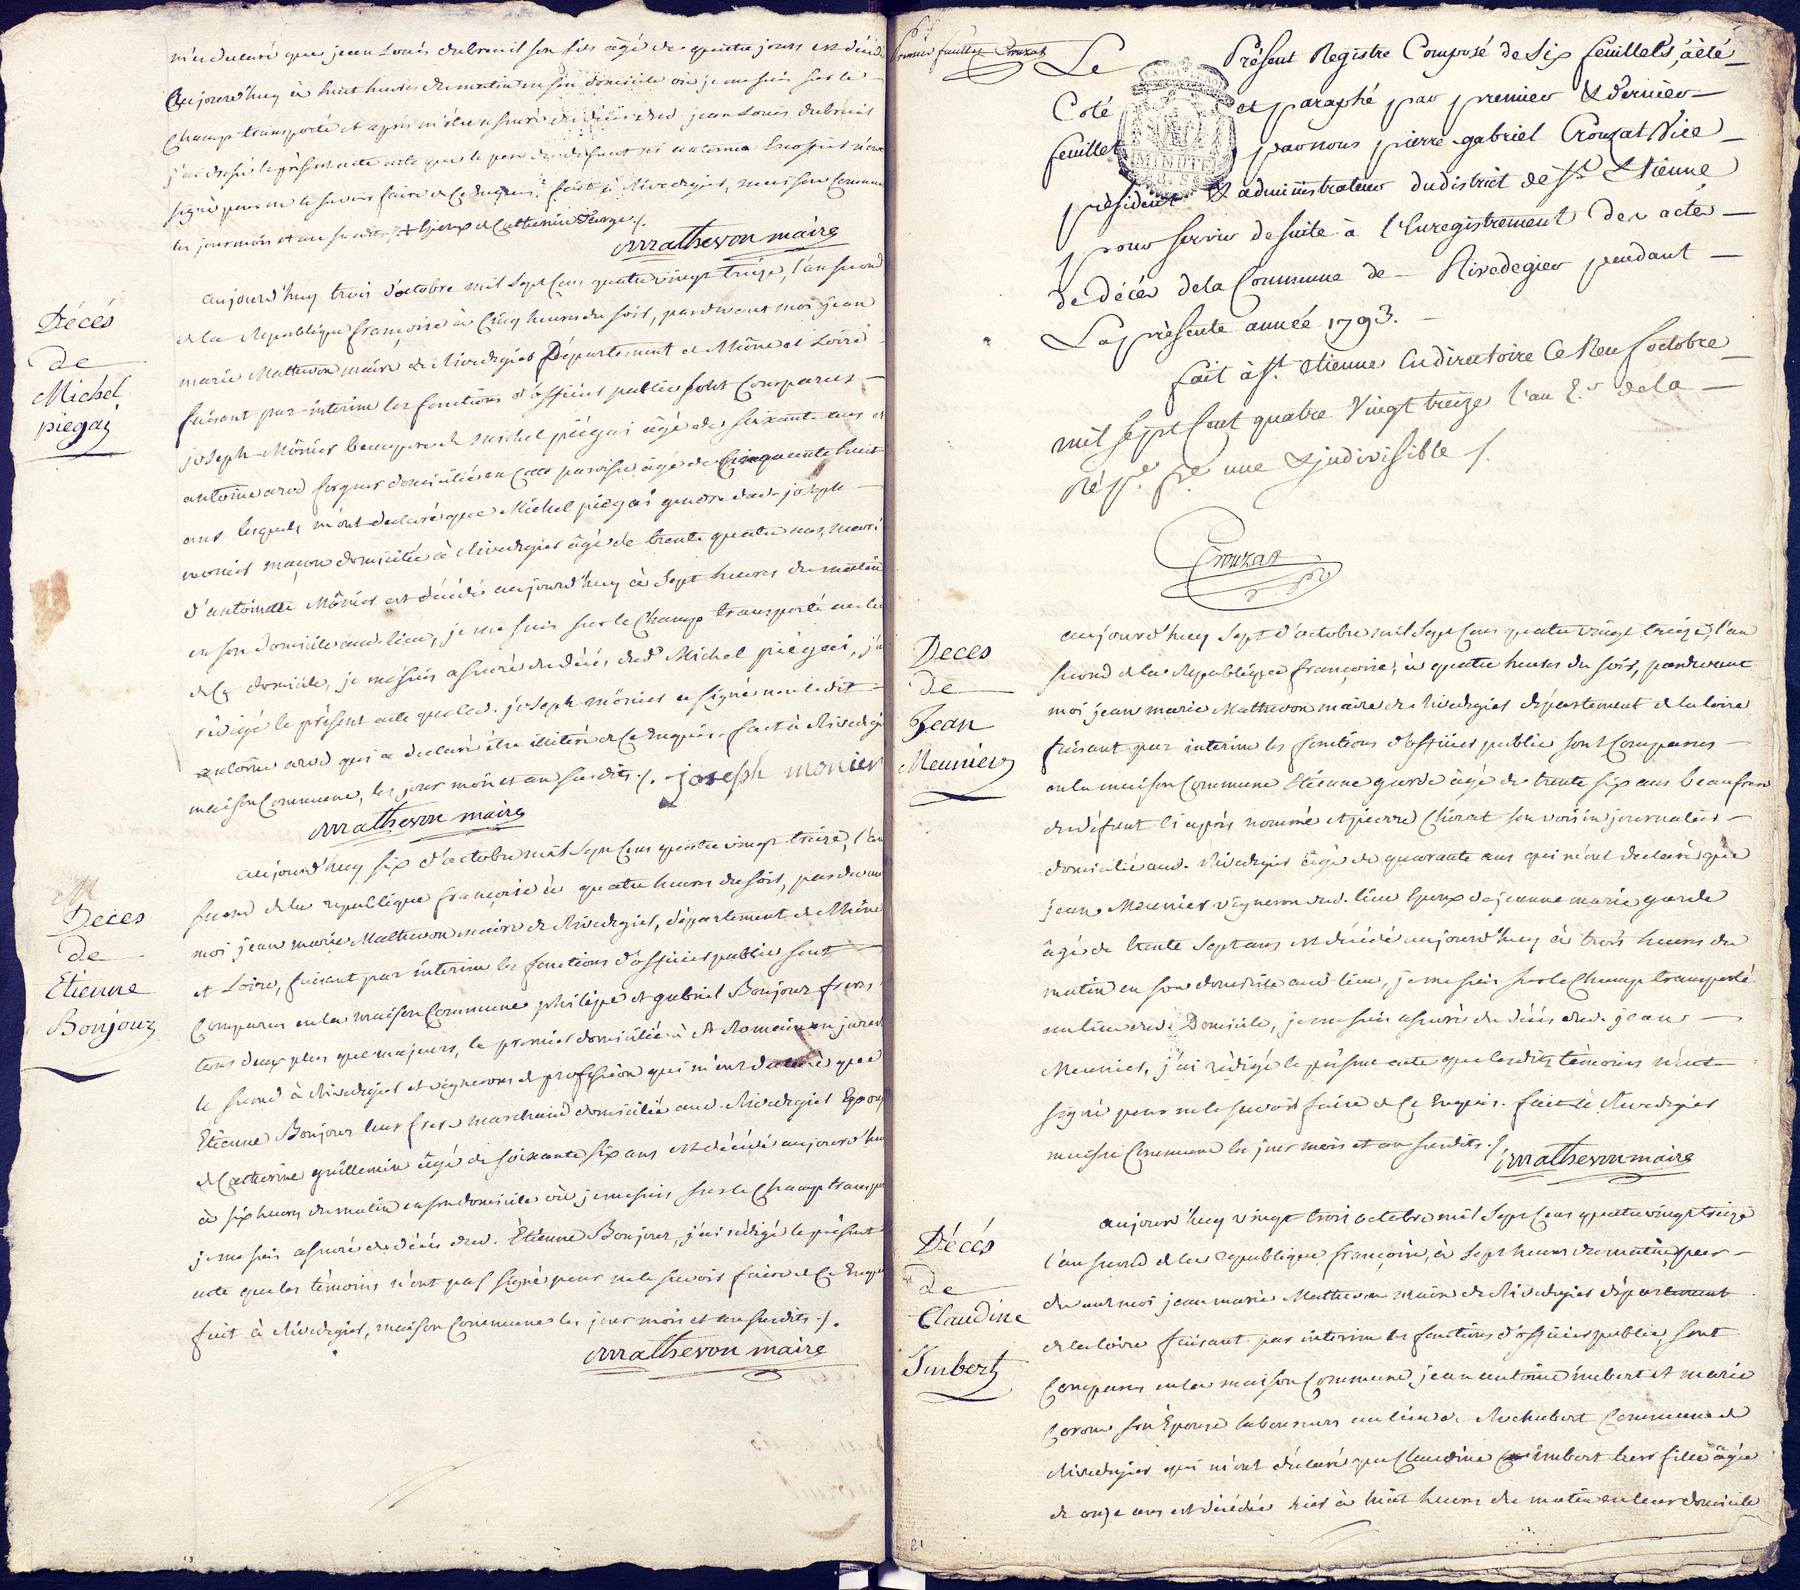 m'en déclaré que jean Louis dubreuil son fils âgé de quatre jours est décédé
aujourd'huy à huit heures du matin en son domicile où je me suis sur le
Champ transporté et après m'être assuré du décès dud jean Louis dubreuil
j'ai dressé le présent acte que le pere du defunt ni
signé pour ne le savoir faire de ce Enquis. fait à Rivedegier, maison Commune
les jour mois et an susdits
Mathevon maire
Décés
de
Michel
piégai
aujourd'huy trois d'octobre mil Sept Cens quatre vingt treize, l'an second
de la République françoise à Cinq heures du soir, pardevant moi jean
marie Mathevon maire de Rivedegier Département de Rhône et Loire
faisant par interim les fonctions d'officier public sont Comparus
joseph Mônier beaupere de michel piégai âgé de soixante ans et
antoine arod domicilié en Cette paroisse âgé de Cinquante huit
ans lesquels m'ont declaré que Michel piégai gendre dud. joseph
monier maçon domicilié à Rivedegier âgé de trente quatre ans, mari
d'antoinette Mônier est décédé aujourd'huy à Sept heures du matin
en son domicile aud. lieu, je me suis sur le Champ transporté au lieu
de Ce domicile, je me suis assuré du décès dud. Michel piégai, j'ai
rédigé le présent acte que led. joseph mônier a signé non ledit
antoine arod qui a declaré être illitéré de Ce Enquis. fait à Rivedegier
maison Commune, les jour mois et an susdits ./. joseph monier
Mathevon maire
Décés
de
Etienne
Bonjour
aujourd'huy six d'octobre mil Sept Cens quatre vingt treize, l'an
second de la republique françoise à quatre heures du soir, pardevant
moi jean marie Mathevon maire de Rivedegier, département de Rhône
et Loire, faisant par interim les fonctions d'officier public sont
Comparus en la maison Commune philipe et gabriel Bonjour freres
tous deux plus que majeurs, le premier domicilié à St Romain en jarest
le second à Rivedegier et vignerons de profession qui m'ont declaré que
Etienne Bonjour leur frere marchand domicilié aud. Rivedegier Epoux
de Catherine guillemin âgé de soixante six ans est décédé aujourd'huy
à six heures du matin en son domicile où je me suis sur le Champ transporté
je me suis assuré du décès dud. Etienne Bonjour, j'ai rédigé le présent
acte que les témoins n'ont pas signé pour ne le savoir faire de Ce Enquis
fait à Rivedegier, maison Commune les jour mois et an susdits ./.
Mathevon maire
premier feuillet Crouzat
Le Présent Registre Composé de Six feuillets, à été
Coté et paraphé par premier & dernier
feuillet par nous pierre gabriel Crouzat Vice
président & administrateur du district de St. Etienne
pour servir de suite à l'Enregistrement des actes
de décès de la Commune de Rivedegier pendant
La présente année 1793.
MINUTE
fait à St. Etienne En directoire Ce Neuf octobre
mil sept Cent quatre Vingt treize l'an 2.e de la
Rép.e f.se une & indivisible ./.
Crouzat
Deces
de
Jean
Meunier
aujourd'huy Sept d'octobre mil Sept Cens quatre vingt treize, l'an
second de la République françoise, à quatre heures du soir, pardevant
moi jean marie Mathevon maire de Rivedegier département de la loire
faisant par interim les fonctions d'officier public sont Comparus
en la maison Commune Etienne garde âgé de trente six ans beaufrere
du défunt Ci après nommé et pierre Chirat son voisin journalier
domicilié aud. Rivedegier âgé de quarante ans qui m'ont declaré que
jean Meunier vigneron dud. lieu Epoux de jeanne marie garde
âgé de trente Sept ans est décédé aujourd'huy à trois heures du
matin en son domicile aud. lieu, je me suis sur le Champ transporté
au lieu dud. Domicile, je me suis assuré du décès dud. jean
Meunier, j'ai rédigé le présent acte que lesdits témoins n'ont
signé pour ne le savoir faire de Ce Enquis. fait à Rivedegier
maison Commune les jour mois et an susdits ./. Mathevon maire
Décés
de
Claudine
Imbert
aujourd'huy vingt trois octobre mil Sept Cens quatre vingt treize
l'an second de la republique françoise, à Sept heures du matin, par
devant moi jean marie Mathevon maire de Rivedegier département
de la loire faisant par interim les fonctions d'officier public, sont
Comparus en la maison Commune jean antoine imbert et marie
Coron son Epouse laboureurs au lieu de Richebert Commune de
Rivedegier qui m'ont déclaré que Claudine imbert leur fille âgée
de onze ans est décédée hier à huit heures du matin en leur domicile
21